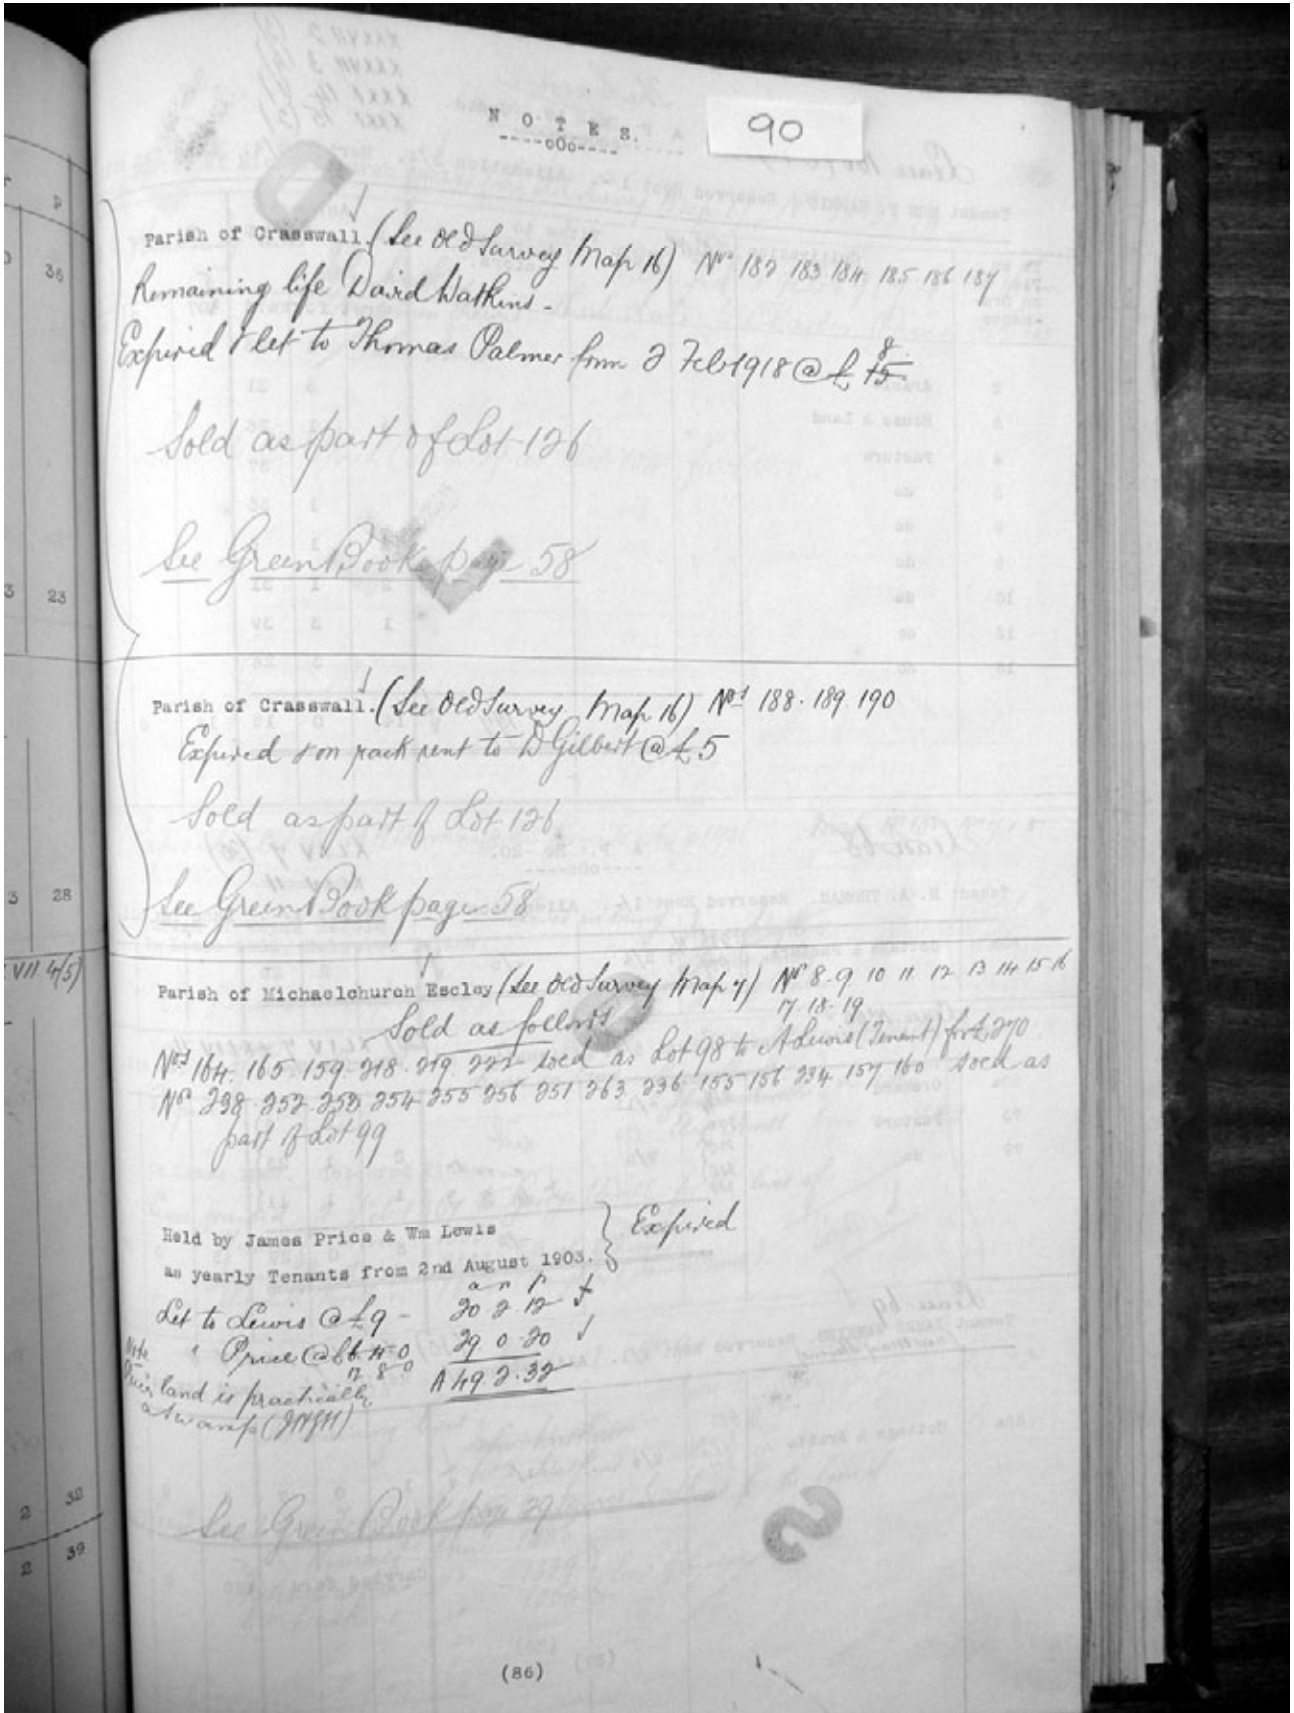 NOTES.
----oOo----
90
Parish of Crasswall. (See Old Survey Map 16) Nos 182 183 184 185 186 187
Remaining life David Watkins -
Expired & let to Thomas Palmer from 2 Feb 1918 @ £ 15 8
Sold as part of Lot 126
See Green Book page 58
Parish of Crasswall. (See Old Survey Map 16) Nos 188. 189. 190
Expired & on rack rent to D Gilbert @ £5
Sold as part of Lot 126
See Green Book page 58
Parish of Michaelchurch Escley (See Old Survey Map 7) Nos 8. 9 10 11 12 13 14 15 16
17. 18. 19
Sold as follows
Nos 164. 165. 159. 218. 219. 222 sold as Lot 98 to A Lewis (Tenant) for £270
Nos 238. 252. 253 254 255 256 251 263 236 155 156 234 157 160 sold as
part of Lot 99
Held by James Price & Wm Lewis
as yearly Tenants from 2nd August 1903. } Expired
a r p
Let to Lewis @ £9 - 20 2 12
" Price @ 29 0 20
A 49. 2. 32
Note
land is practically
a swamp
See Green Book page 39
(86)
36
23
28
VII 4(5)
2 32
2 39